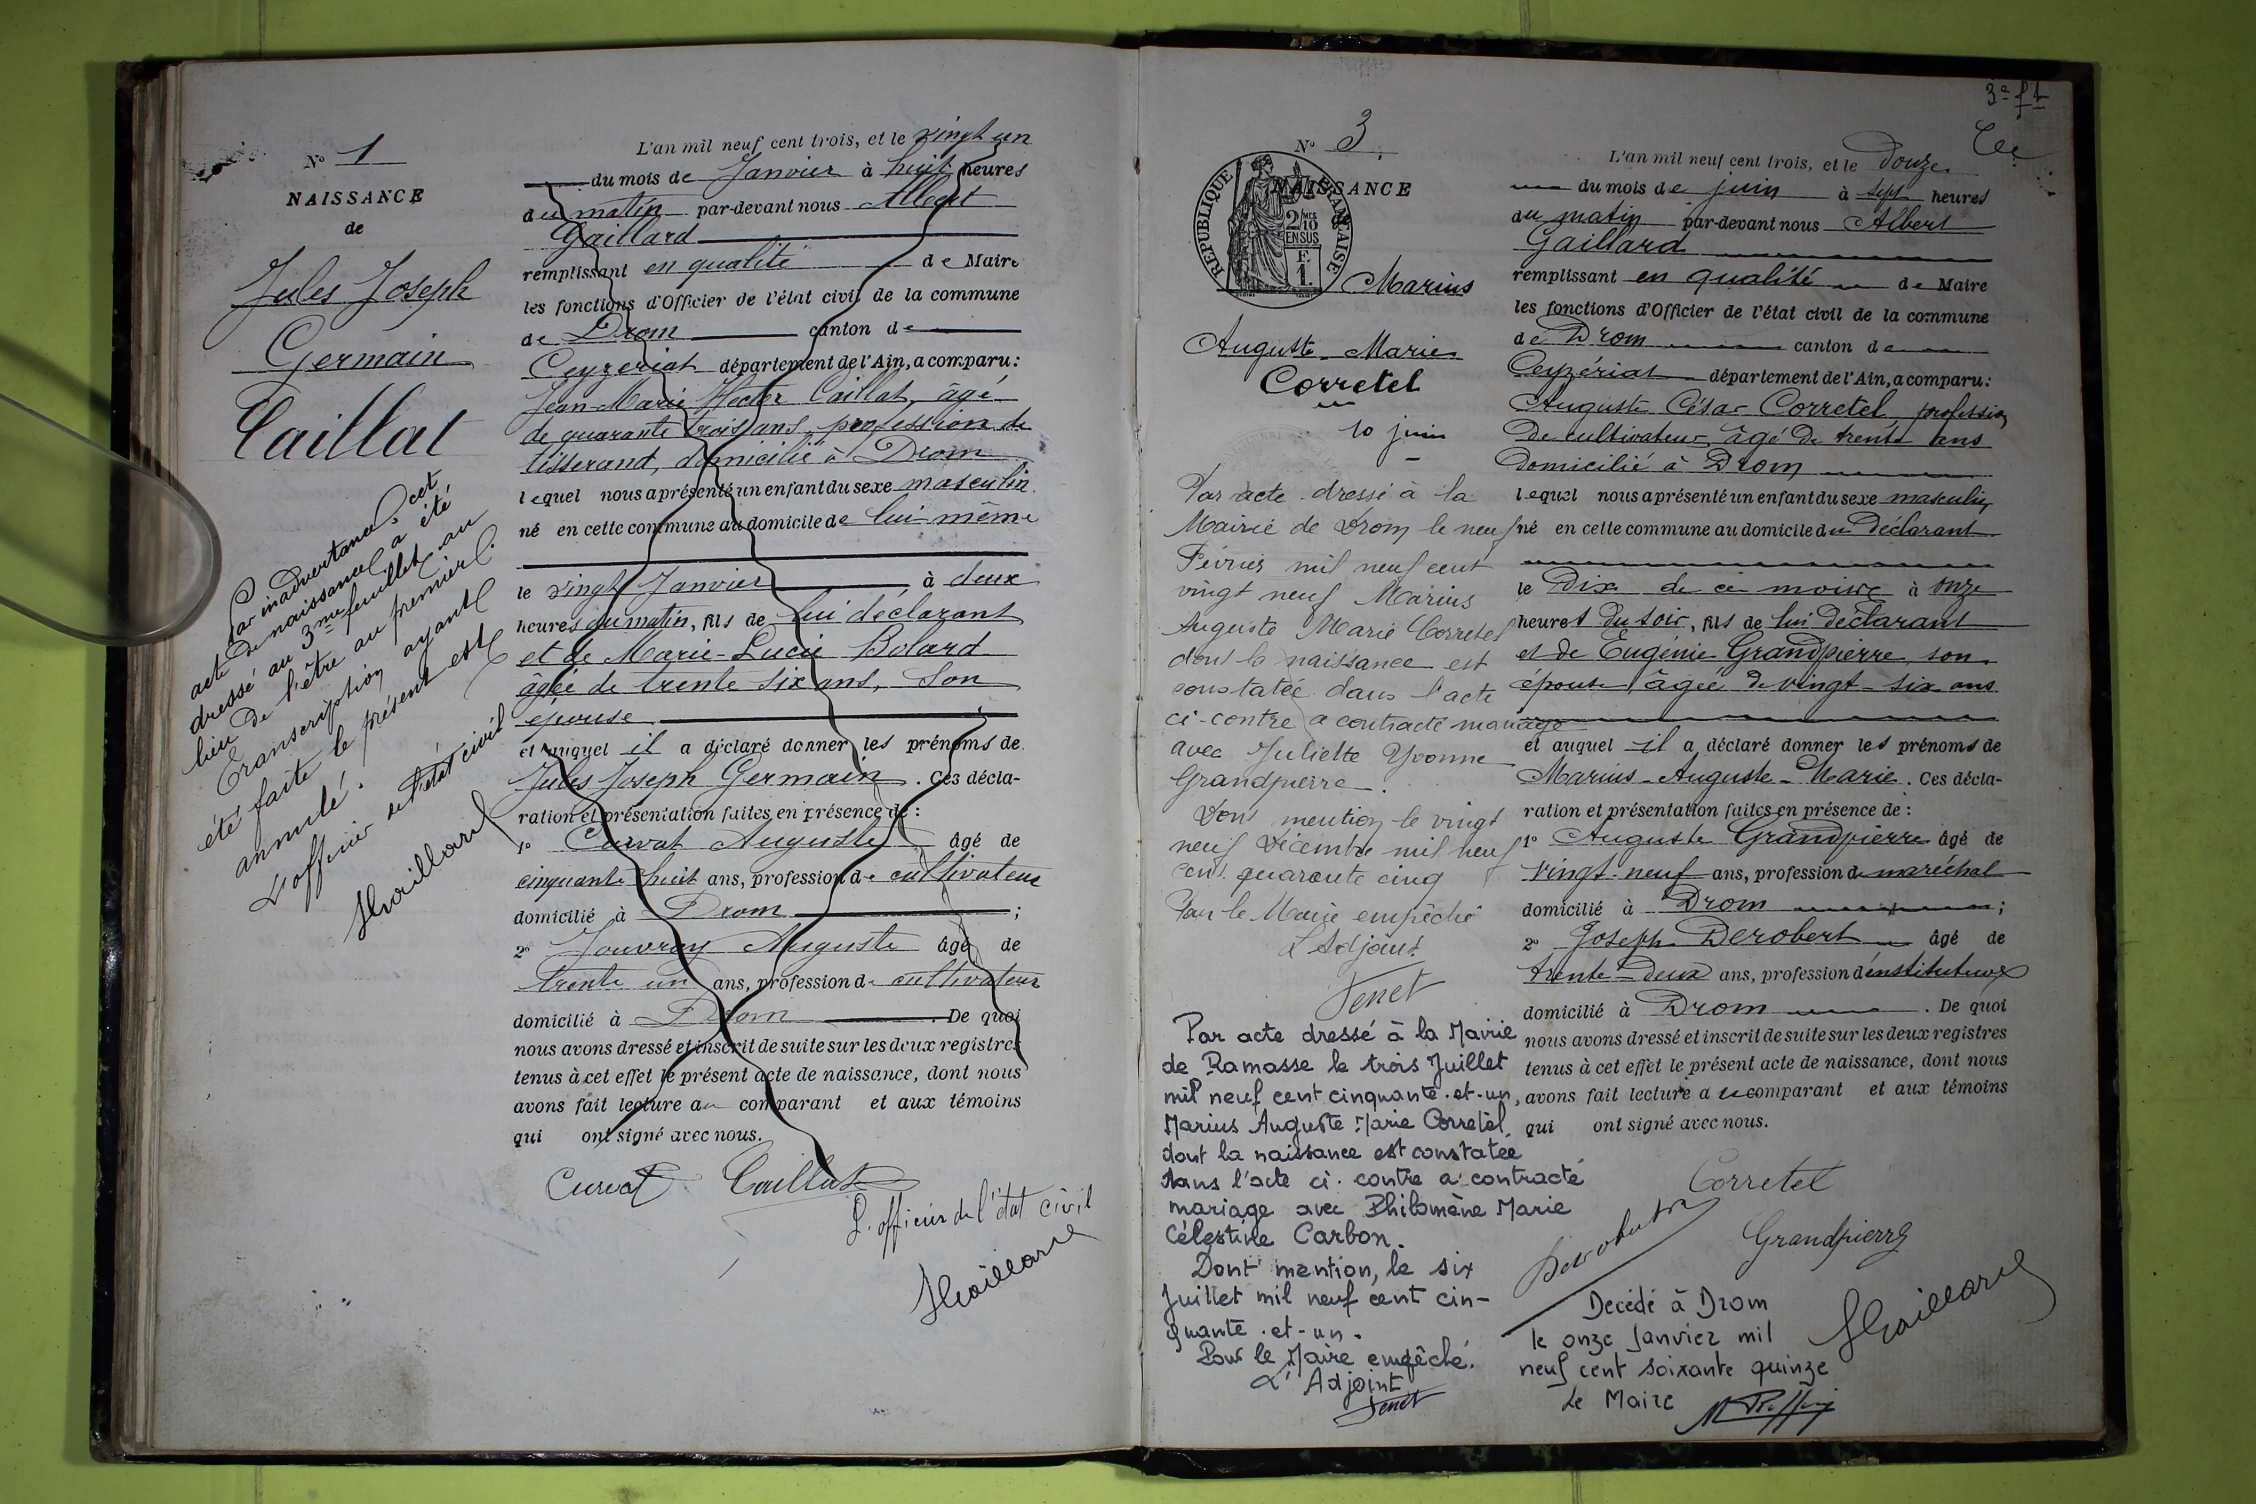 N° 1
NAISSANCE
de
Jules Joseph
Germain
Caillat
Par inadvertance, cet
acte de naissance a été
dressé au 3me feuillet au
lieu de l'être au premier.
Transcription ayant
été faite le présent est
annulé.
L'officier de l'état civil
AGaillard
L'an mil neuf cent trois, et le vingt un
du mois de Janvier à huit heures
du matin par-devant nous Albert
Gaillard
remplissant en qualité de Maire
les fonctions d'Officier de l'état civil de la commune
de Drom canton de
Ceyzériat département de l'Ain, a comparu:
Jean-Marie Hector Caillat, âgé
de quarante trois ans, profession de
tisserand, domicilié à Drom
lequel nous a présenté un enfant du sexe masculin
né en cette commune au domicile de lui-même
le vingt Janvier à deux
heures du matin, fils de lui déclarant
et de Marie-Lucie Bolard
âgée de trente six ans, son
épouse
et auquel il a déclaré donner les prénoms de
Jules Joseph Germain. Ces décla-
ration et présentation faites en présence de:
1° Curvat Auguste âgé de
cinquante huit ans, profession de cultivateur
domicilié à Drom;
2° Jouvray Auguste âgé de
trente un ans, profession de cultivateur
domicilié à Drom. De quoi
nous avons dressé et inscrit de suite sur les deux registres
tenus à cet effet le présent acte de naissance, dont nous
avons fait lecture au comparant et aux témoins
qui ont signé avec nous.
Curvat Caillat
L'officier de l'état civil
AGaillard
3e ft
N° 3
NAISSANCE
RÉPUBLIQUE FRANÇAISE
2/10
EN SUS
F.
1.
Marius
Auguste-Marie
Corretel
10 juin
Par acte dressé à la
Mairie de Drom le neuf
Février mil neuf cent
vingt neuf Marius
Auguste Marie Corretel
dont la naissance est
constatée dans l'acte
ci-contre a contracté mariage
avec Juliette Yvonne
Grandpierre.
Dont mention le vingt
neuf Décembre mil neuf
cent quarante cinq
Pour le Maire empêché
L'Adjoint
Tenet
Par acte dressé à la Mairie
de Ramasse le trois Juillet
mil neuf cent cinquante-et-un,
Marius Auguste Marie Corretel,
dont la naissance est constatée
dans l'acte ci-contre a contracté
mariage avec Philomène Marie
Célestine Carbon.
Dont mention, le six
Juillet mil neuf cent cin-
quante-et-un.
Pour le Maire empêché.
L'Adjoint
Tenet
L'an mil neuf cent trois, et le Douze
du mois de juin à sept heures
du matin par-devant nous Albert
Gaillard
remplissant en qualité de Maire
les fonctions d'Officier de l'état civil de la commune
de Drom canton de
Ceyzériat département de l'Ain, a comparu:
Auguste César Corretel profession
de cultivateur, âgé de trente ans
domicilié à Drom
lequel nous a présenté un enfant du sexe masculin,
né en cette commune au domicile du Déclarant
le Dix de ce mois à onze
heures du soir, fils de lui déclarant
et de Eugénie Grandpierre, son
épouse, âgée de vingt-six ans
et auquel il a déclaré donner les prénoms de
Marius-Auguste-Marie. Ces décla-
ration et présentation faites en présence de:
1° Auguste Grandpierre âgé de
vingt-neuf ans, profession de maréchal
domicilié à Drom;
2° Joseph Derobert âgé de
trente-deux ans, profession d'instituteur
domicilié à Drom. De quoi
nous avons dressé et inscrit de suite sur les deux registres
tenus à cet effet le présent acte de naissance, dont nous
avons fait lecture au comparant et aux témoins
qui ont signé avec nous.
Corretel
Derobert
Grandpierre
AGaillard
Décédé à Drom
le onze Janvier mil
neuf cent soixante quinze
Le Maire